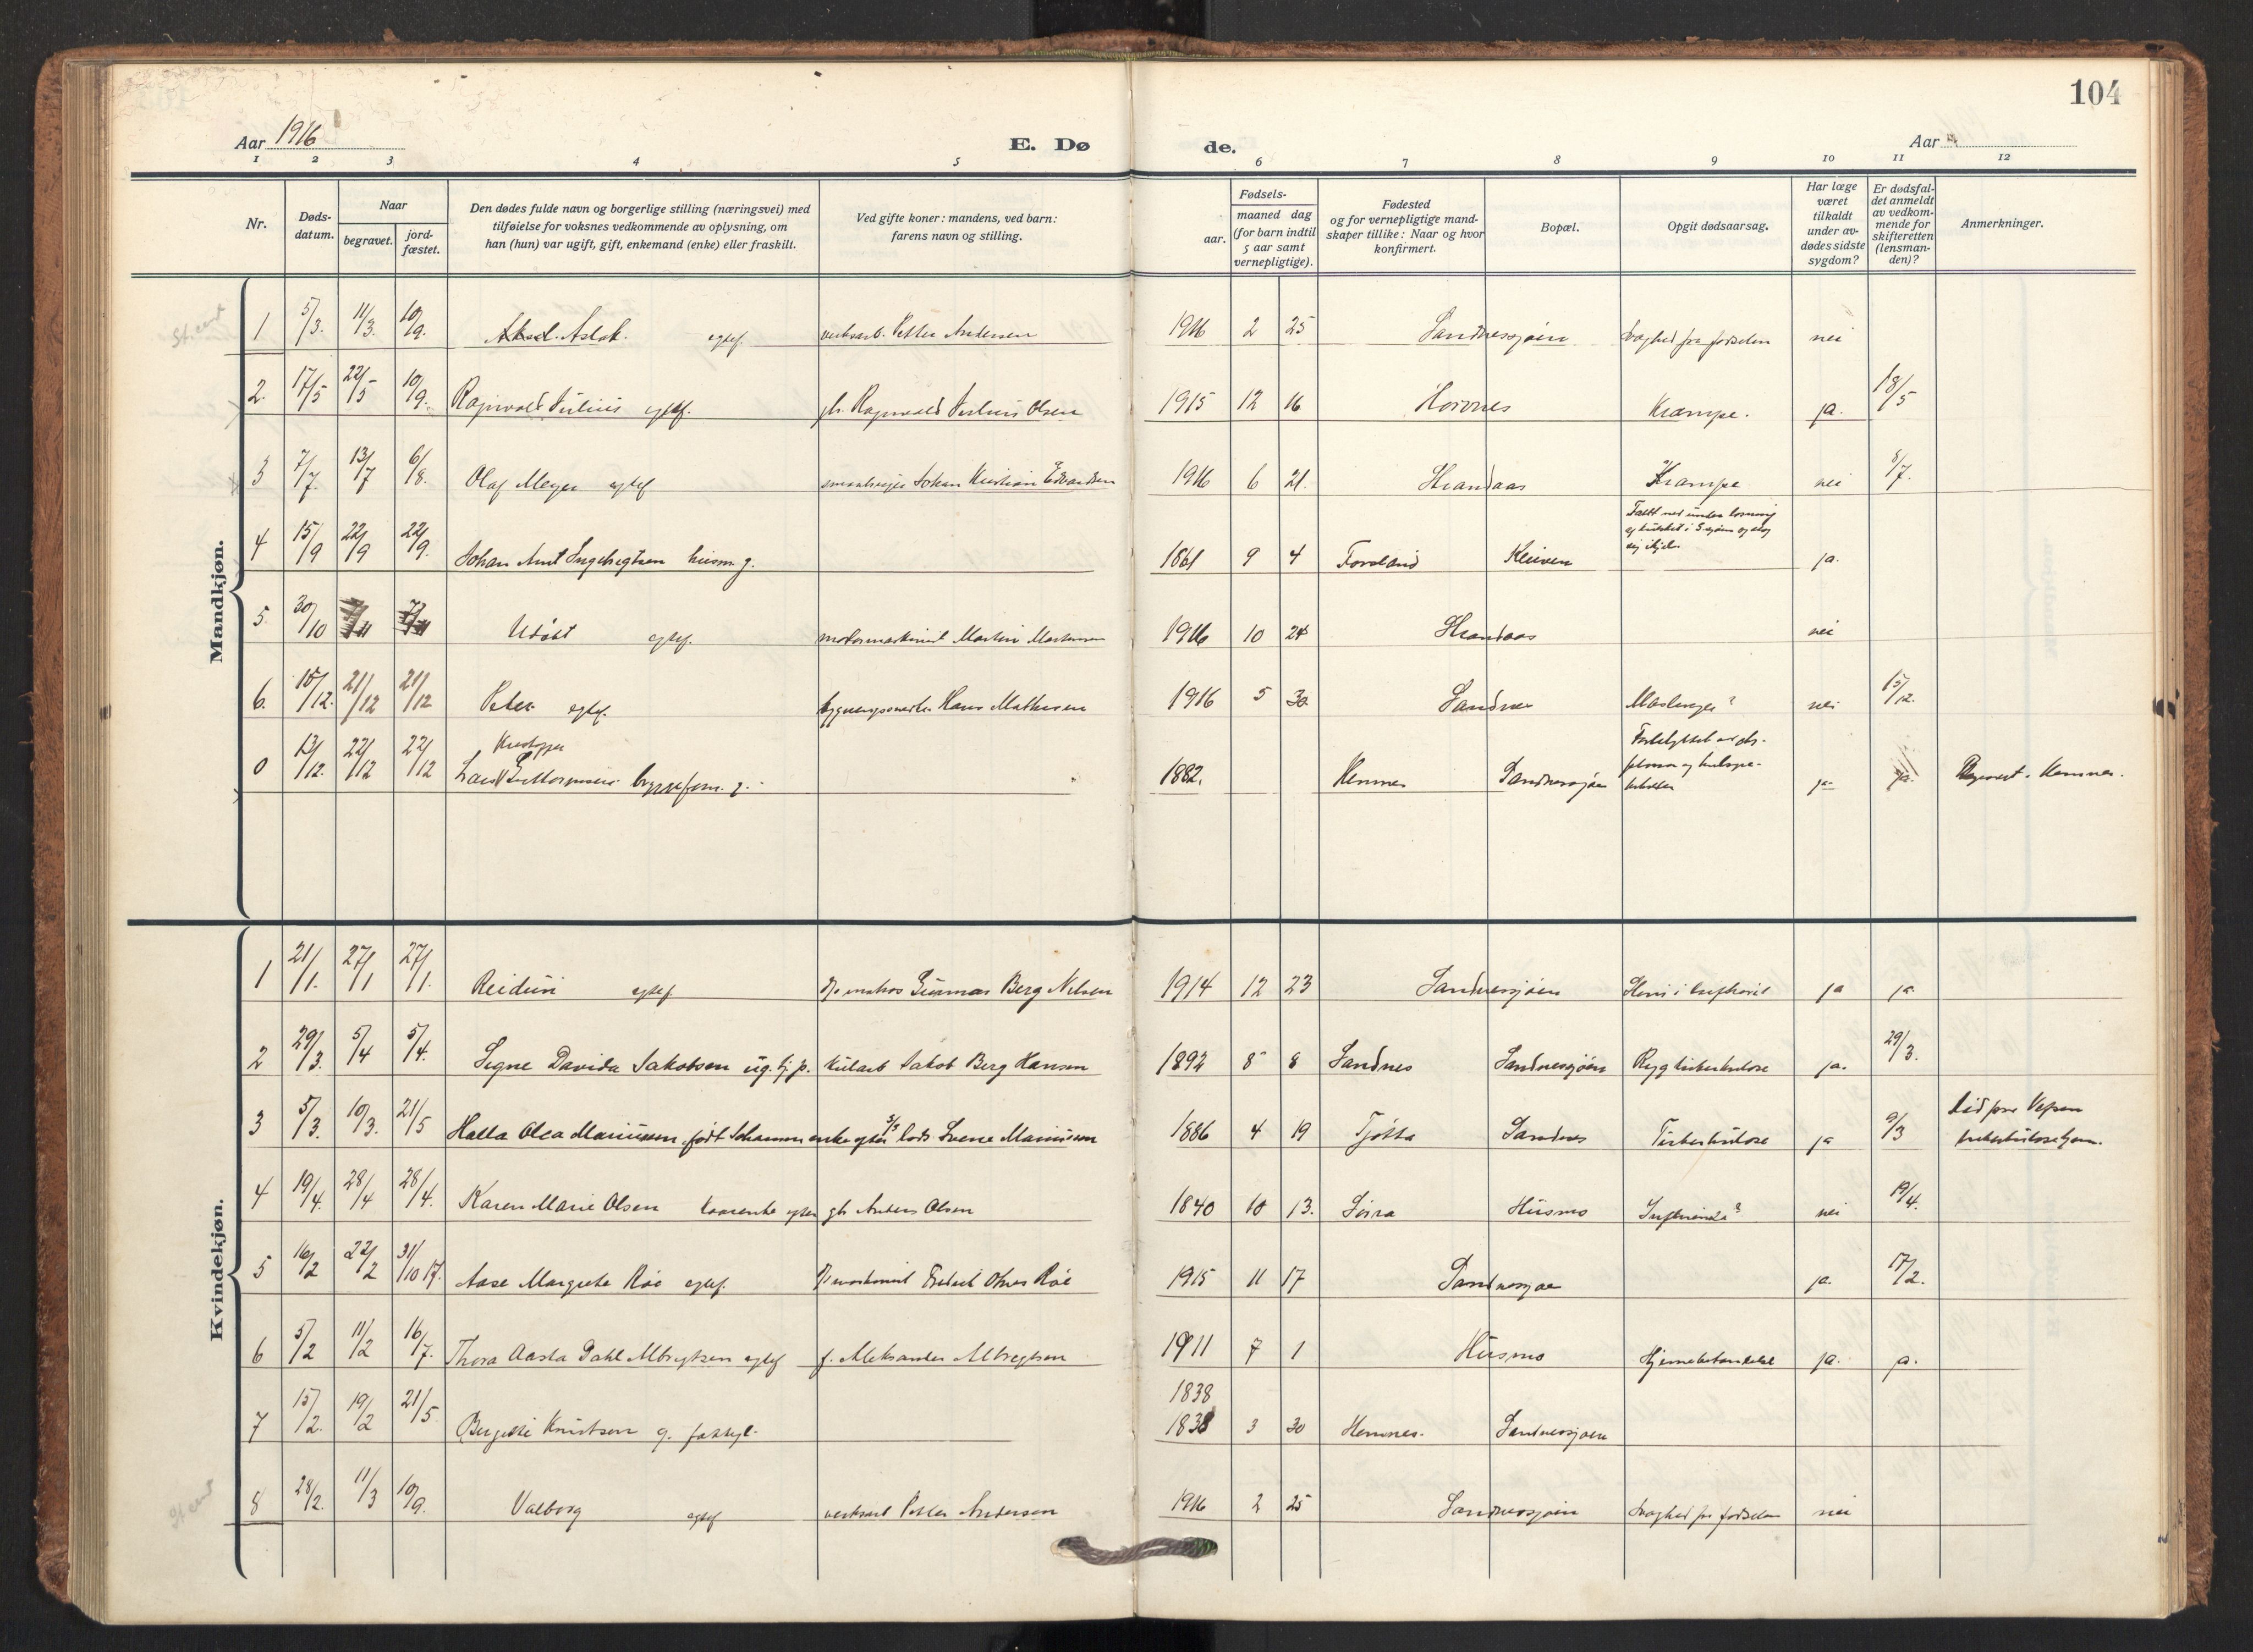 104
Aar 1916
E. Dø
de.
Aar
1 2 3 4 5 6 7 8 9 10 11 12
Nr.
Døds-
datum.
Naar
begravet.
jord-
fæstet.
Den dødes fulde navn og borgerlige stilling (næringsvei) med
tilføielse for voksnes vedkommende av oplysning, om
han (hun) var ugift, gift, enkemand (enke) eller fraskilt.
Ved gifte koner: mandens, ved barn:
farens navn og stilling.
Fødsels-
aar.
maaned dag
(for barn indtil
5 aar samt
vernepligtige).
Fødested
og for vernepligtige mand-
skaper tillike: Naar og hvor
konfirmert.
Bopæl.
Opgit dødsaarsag.
Har læge
været
tilkaldt
under av-
dødes sidste
sygdom?
Er dødsfal-
det anmeldt
av vedkom-
mende for
skifteretten
(lensman-
den)?
Anmerkninger.
Mandkjøn.
1 5/3. 11/3. 10/9. Aksel. Aslak. egtef. verksarb. Petter Andersen 1916 2 25 Sandnessjøen Svaghed fra fødselen nei
2. 17/5 22/5 10/9. Ragnvald Julius egtef. gb. Ragnvald Julius Olsen 1915 12 16 Krampe. ja. 18/5
3 7/7. 13/7 6/8. Olaf Meyer egtef Johan Kristian Edvardsen 1916 6 21. Strandaas Krampe nei 8/7.
4 15/9 22/9 22/9. Johan Arnt Ingebrigtsen husm. g. 1861 9 4 Forsland Kleiven ja.
5 30/10 egtef. motormaskinist Martin 1916 10 24 Strandaas nei
6. 15/12. 21/12 21/12 Peter egtef. bygningsmester Hans Mathisen 1916 5 30 Sandnes Meslinger? nei 15/12.
0 13/12. 22/12 22/12 Lars Guttormsen g. 1882. Hemnes Sandnessjøen ja ja. Hemnes.
Kvindekjøn.
1 21/1. 27/1 27/1. Reidun egtef Gunnar Berg Nilsen 1914 12 23 Sandnessjøen ja ja
2 29/3. 5/4 5/4. Signe Davida Jakobsen ug. tj. p. kularb Jakob Berg Hansen 1892 8 8 Sandnes Sandnessjøen Rygtuberkulose ja. 29/3.
3 5/3. 10/3. 21/5 Halla Olea Mariussen født enke efter lods Sverre Mariussen 1886 4 19 Tjøtta Sandnes Tuberkulose ja 9/3 Død paa Vefsen
tuberkulosehjem.
4 19/4. 28/4 28/4. Karen Marie Olsen kaarenke efter gb Anders Olsen 1840 10 13. Husmo Influenza? nei 19/4.
5 16/2 22/2 31/10 17. Aase Margrethe Røe egtef. Røe 1915 11 17 Sandnessjøen ja. 17/2.
6 5/2 11/2 16/7. Thora Aasta Dahl Albrigtsen egtef f. Aleksander Albregtsen 1911 7 1 Husmo Hjernebetændelse ja. ja.
1838
7 15/2. 19/2 21/5 Knutsen g. 1838 3 30 Hemnes. Sandnessjøen
8 28/2. 11/3 10/9. Valborg egtef verksarb Petter Andersen 1916 2 25 Sandnessjøen Svaghed fra fødselen nei